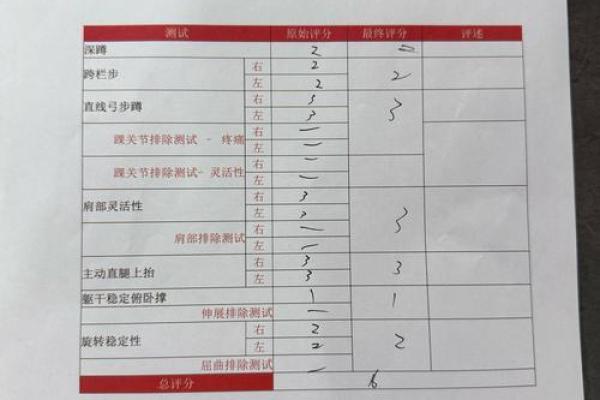 测试 原始评分 最终评分 评述
深蹲 2
跨栏步 右 2 2
左 2
直线弓步蹲 右 3 3
左 3
踝关节排除测试 - 疼痛 右 —
左 —
踝关节排除测试- 灵活性 右 —
左 —
肩部灵活性 右 3 3
左 3
肩部排除测试 右 —
左 —
主动直腿上抬 右 3 3
左 3
躯干稳定俯卧撑 1 1
伸展排除测试 —
旋转稳定性 右 2 2
左 2
屈曲排除测试 —
总评分 16